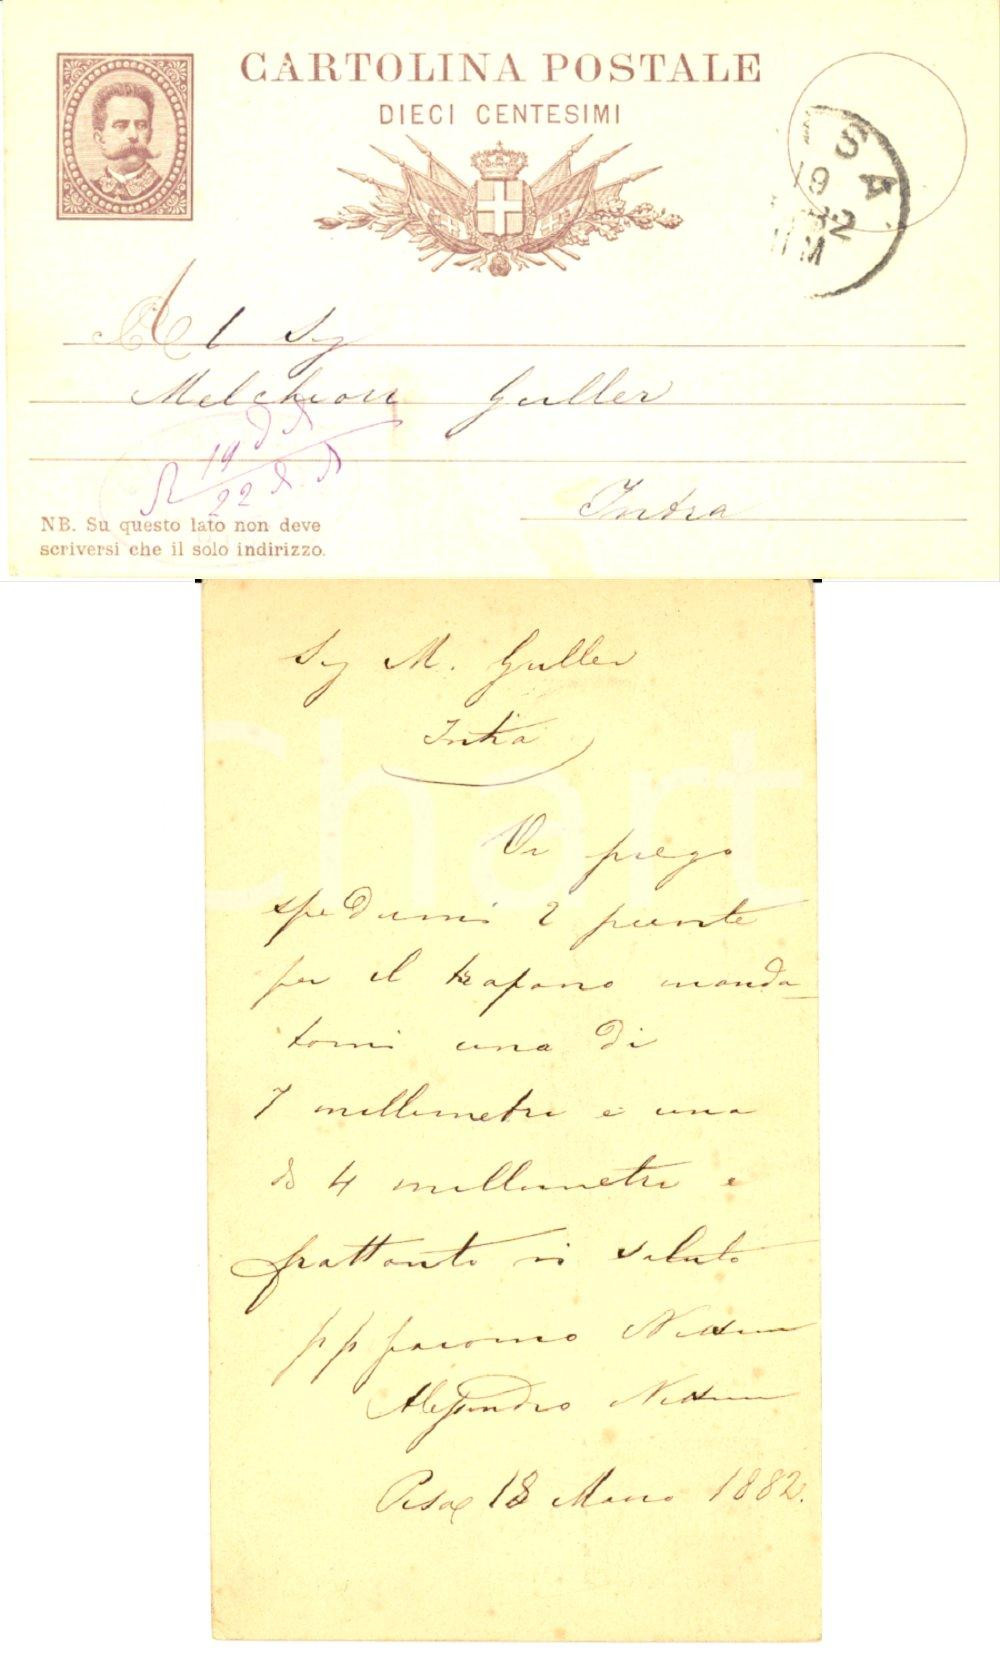 CARTOLINA POSTALE
DIECI CENTESIMI
SA
19
82
M
Al Sig
Melchiorre Guller
19
22
Intra
NB. Su questo lato non deve
scriversi che il solo indirizzo.
Sig M. Guller
Intra
Vi prego
spedirmi 2 punte
per il trapano manda-
tomi una di
7 millimetri e una
di 4 millimetri e
frattanto vi saluto
pp Giacomo Nissim
Alessandro Nissim
Pisa 18 Marzo 1882.
Chart